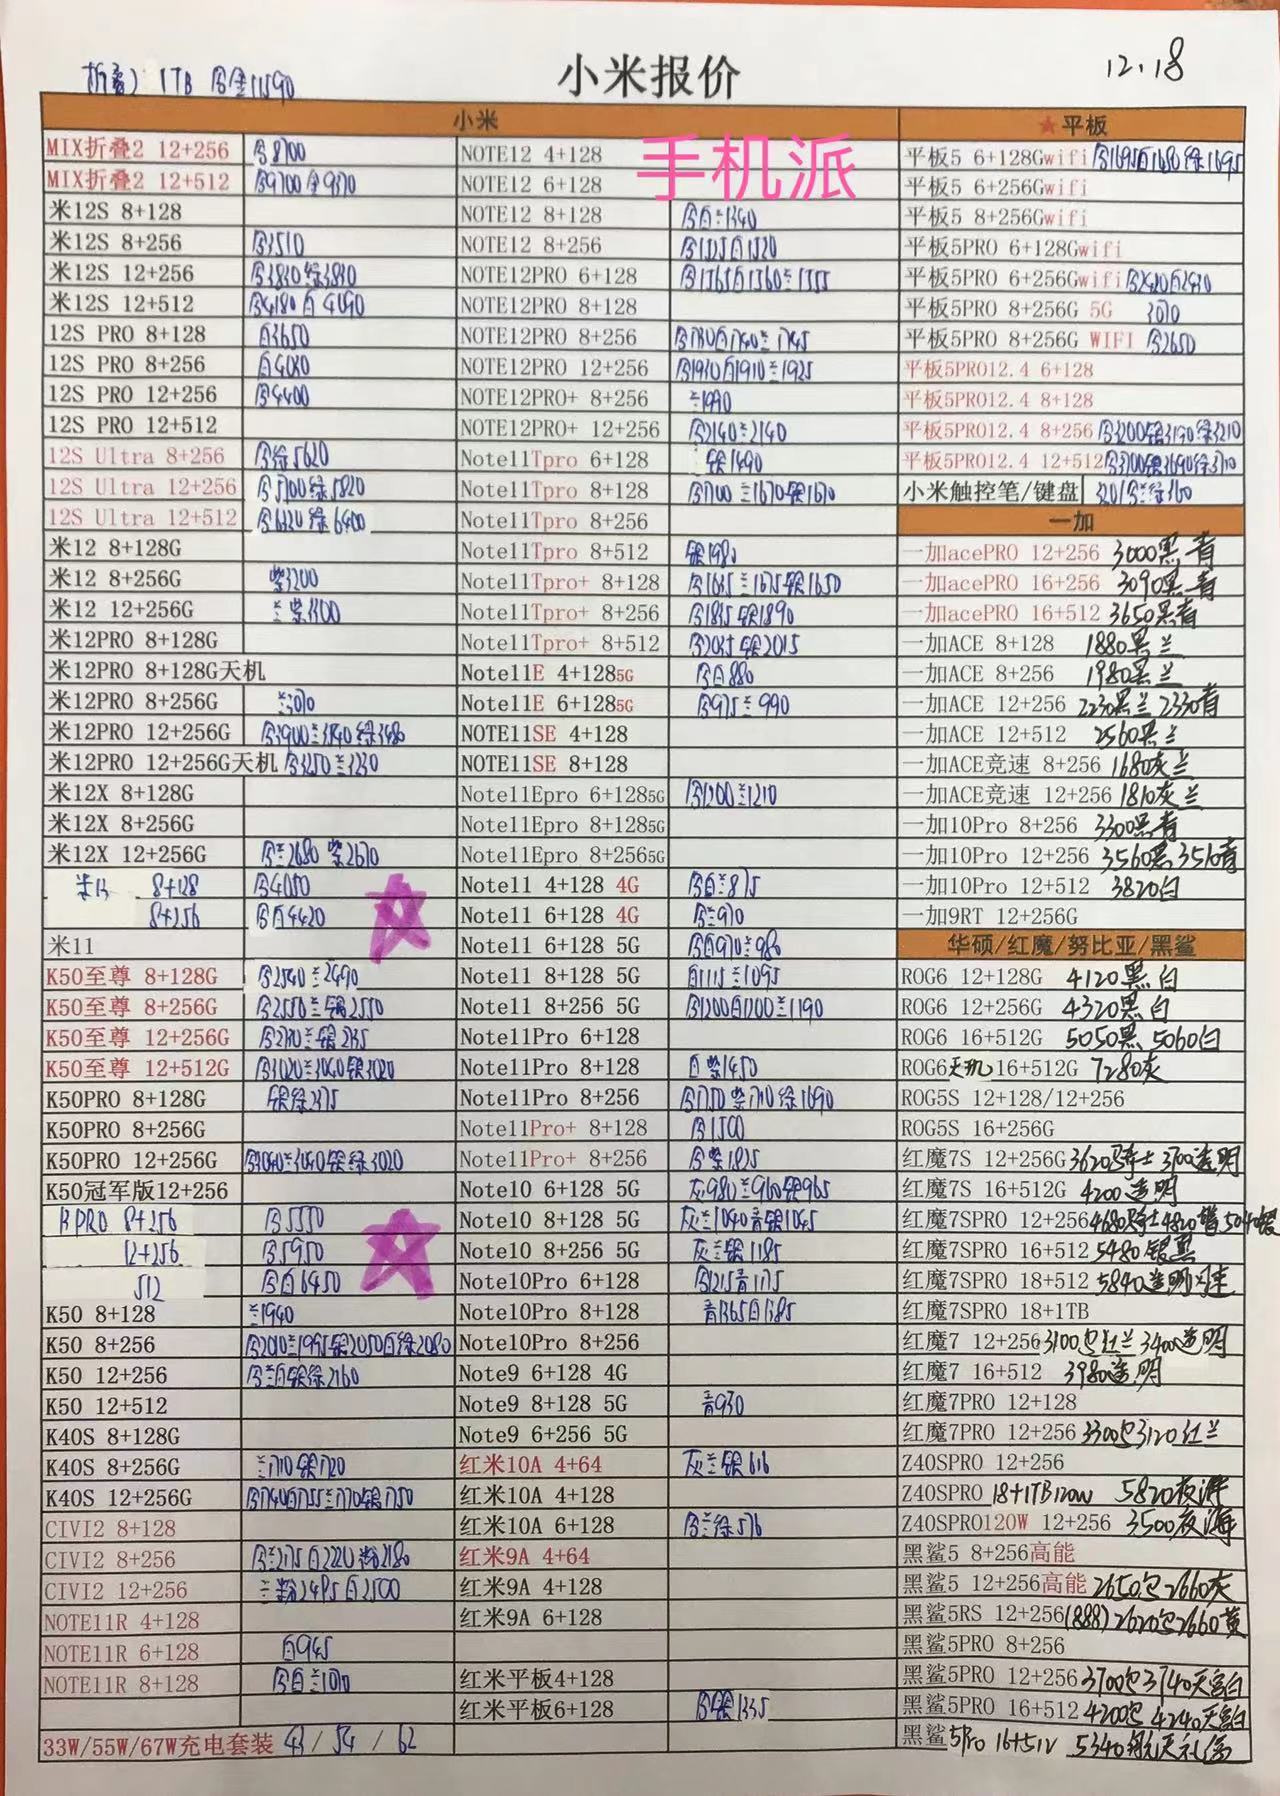 小米报价
12.18
1TB 11590
小米
MIX折叠2 12+256 8700
MIX折叠2 12+512 9700 金9370
米12S 8+128
米12S 8+256 3510
米12S 12+256
米12S 12+512 4180 白4090
12S PRO 8+128 白3650
12S PRO 8+256 白4080
12S PRO 12+256 4400
12S PRO 12+512
12S Ultra 8+256 绿5620
12S Ultra 12+256 5700绿5820
12S Ultra 12+512 绿6400
米12 8+128G
米12 8+256G 紫3200
米12 12+256G
米12PRO 8+128G
米12PRO 8+128G天机
米12PRO 8+256G
米12PRO 12+256G
米12PRO 12+256G天机
米12X 8+128G
米12X 8+256G
米12X 12+256G 兰2680 紫2670
米13 8+128 4050
8+256 白4420
米11
K50至尊 8+128G 2540兰2490
K50至尊 8+256G 2550兰银2550
K50至尊 12+256G
K50至尊 12+512G 3020兰3040银3020
K50PRO 8+128G
K50PRO 8+256G
K50PRO 12+256G 3040兰3040银绿3020
K50冠军版12+256
13PRO 8+256 5550
12+256 5950
512 白6450
K50 8+128 兰1940
K50 8+256 2010兰1995银2050白绿2080
K50 12+256 兰白银绿2160
K50 12+512
K40S 8+128G
K40S 8+256G 兰1710银1720
K40S 12+256G 1740白1755兰1770银1750
CIVI2 8+128
CIVI2 8+256 兰2175白2220粉2180
CIVI2 12+256 兰粉2495白2500
NOTE11R 4+128
NOTE11R 6+128 白945
NOTE11R 8+128 白兰1010
33W/55W/67W充电套装 43 / 54 / 62
手机派
NOTE12 4+128
NOTE12 6+128
NOTE12 8+128 白兰1340
NOTE12 8+256 1525白1520
NOTE12PRO 6+128 1565白1560兰1555
NOTE12PRO 8+128
NOTE12PRO 8+256 白1740兰1745
NOTE12PRO 12+256 1910白1910兰1925
NOTE12PRO+ 8+256 兰1990
NOTE12PRO+ 12+256 2140兰2140
Note11Tpro 6+128 银1490
Note11Tpro 8+128 1700兰1670银1670
Note11Tpro 8+256
Note11Tpro 8+512 银1980
Note11Tpro+ 8+128 兰1675银1650
Note11Tpro+ 8+256 银1890
Note11Tpro+ 8+512 银2015
Note11E 4+1285G 白880
Note11E 6+1285G 975兰990
NOTE11SE 4+128
NOTE11SE 8+128
Note11Epro 6+1285G 1200兰1210
Note11Epro 8+1285G
Note11Epro 8+2565G
Note11 4+128 4G 白兰875
Note11 6+128 4G 兰970
Note11 6+128 5G 白970兰980
Note11 8+128 5G 白1115兰1095
Note11 8+256 5G 1200白1200兰1190
Note11Pro 6+128
Note11Pro 8+128 白紫1450
Note11Pro 8+256 1750紫1710绿1690
Note11Pro+ 8+128 1500
Note11Pro+ 8+256 紫1825
Note10 6+128 5G 灰980兰960银965
Note10 8+128 5G 灰兰1040青银1045
Note10 8+256 5G 灰兰银1185
Note10Pro 6+128 1215青1175
Note10Pro 8+128 青1365白1385
Note10Pro 8+256
Note9 6+128 4G
Note9 8+128 5G 青930
Note9 6+256 5G
红米10A 4+64 灰兰银616
红米10A 4+128
红米10A 6+128 兰绿576
红米9A 4+64
红米9A 4+128
红米9A 6+128
红米平板4+128
红米平板6+128 银1335
★平板
平板5 6+128Gwifi 1695白1680绿1695
平板5 6+256Gwifi
平板5 8+256Gwifi
平板5PRO 6+128Gwifi
平板5PRO 6+256Gwifi 2420白2430
平板5PRO 8+256G 5G
平板5PRO 8+256G WIFI 2650
平板5PRO12.4 6+128
平板5PRO12.4 8+128
平板5PRO12.4 8+256 3200银3190绿3210
平板5PRO12.4 12+512 3700银3690绿3710
小米触控笔/键盘
一加
一加acePRO 12+256 3000黑青
一加acePRO 16+256 3090黑青
一加acePRO 16+512 3650黑青
一加ACE 8+128 1880黑兰
一加ACE 8+256 1980黑兰
一加ACE 12+256 2230黑兰 2330青
一加ACE 12+512 2560黑兰
一加ACE竞速 8+256 1680灰兰
一加ACE竞速 12+256 1810灰兰
一加10Pro 8+256 3300黑青
一加10Pro 12+256 3560黑 3510青
一加10Pro 12+512 3820白
一加9RT 12+256G
华硕/红魔/努比亚/黑鲨
ROG6 12+128G 4120黑白
ROG6 12+256G 4320黑白
ROG6 16+512G 5050黑 5060白
ROG6天玑16+512G 7280灰
ROG5S 12+128/12+256
ROG5S 16+256G
红魔7S 12+256G 3620骑士 3700透明
红魔7S 16+512G 4200透明
红魔7SPRO 12+256 4680骑士4820 5040银
红魔7SPRO 16+512 5480银黑
红魔7SPRO 18+512 5840透明
红魔7SPRO 18+1TB
红魔7 12+256 3400透明
红魔7 16+512 3980透明
红魔7PRO 12+128
红魔7PRO 12+256 3120红兰
Z40SPRO 12+256
Z40SPRO 18+1TB120W 5820夜海
Z40SPRO120W 12+256 3500夜海
黑鲨5 8+256高能
黑鲨5 12+256高能 2660灰
黑鲨5RS 12+256(888) 2660黄
黑鲨5PRO 8+256
黑鲨5PRO 12+256 3740天宫白
黑鲨5PRO 16+512 4240天宫白
黑鲨5Pro 16+512 5340航天礼盒